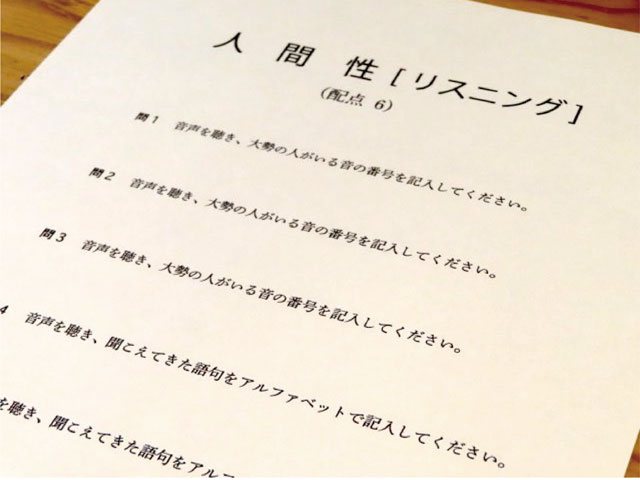 人 間 性 [ リスニング ]
（配点 6）
問 1 音声を聴き、大勢の人がいる音の番号を記入してください。
問 2 音声を聴き、大勢の人がいる音の番号を記入してください。
問 3 音声を聴き、大勢の人がいる音の番号を記入してください。
4 音声を聴き、聞こえてきた語句をアルファベットで記入してください。
を聴き、聞こえてきた語句をアルフ